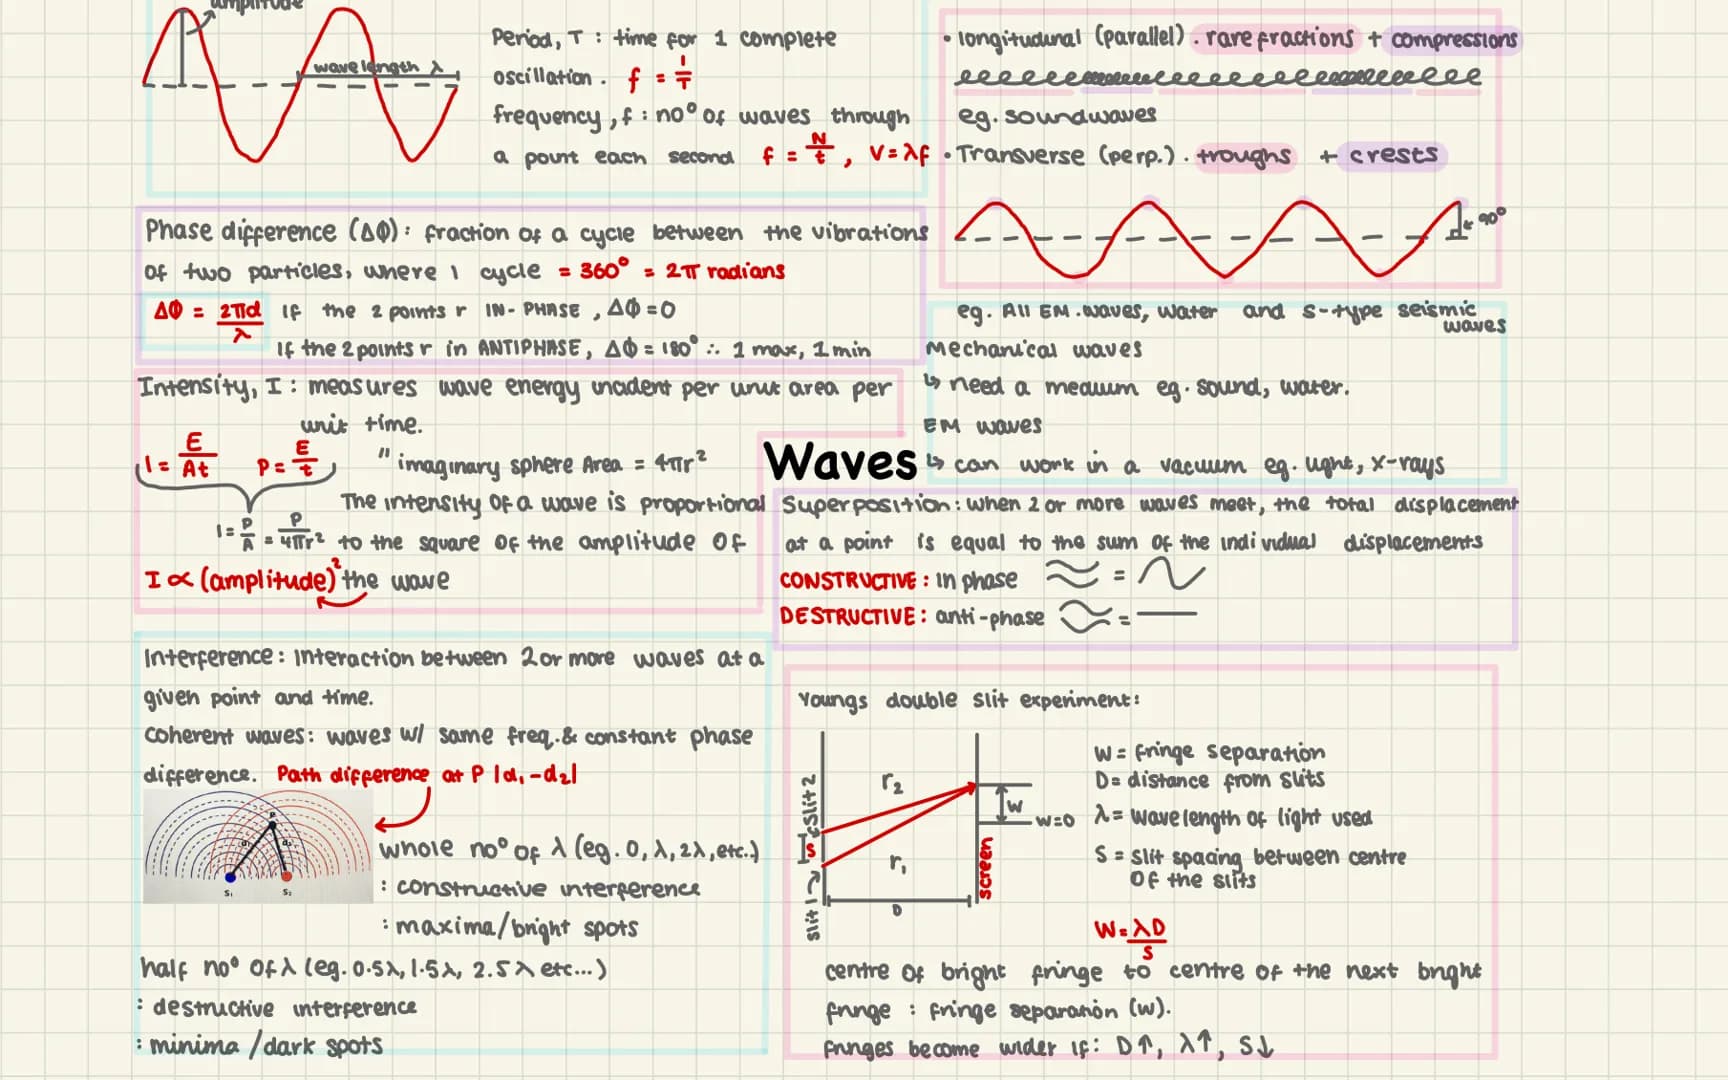 amplitude
wavelength λ
Period, T : time for 1 complete
oscillation. f = 1/T
frequency, f : no° of waves through
a point each second f = N/t , V = λf
• longitudunal (parallel) . rarefractions + compressions
eg. soundwaves
• Transverse (perp.) . troughs + crests
90°
eg. All EM.waves, water and s-type seismic
waves
Phase difference (ΔΦ) : fraction of a cycle between the vibrations
of two particles, where 1 cycle = 360° = 2π radians
ΔΦ = 2πd/λ If the 2 points r IN-PHASE , ΔΦ = 0
If the 2 points r in ANTIPHASE, ΔΦ = 180° ∴ 1 max, 1 min
Mechanical waves
↳ need a medium eg. sound, water.
EM waves
↳ can work in a vacuum eg. light, x-rays
Intensity, I : measures wave energy incident per unit area per
unit time.
I = E/At P = E/t " imaginary sphere Area = 4πr²
I = P/A = P/4πr²
The intensity of a wave is proportional
to the square of the amplitude of
I ∝ (amplitude)² the wave
Waves
Superposition : when 2 or more waves meet, the total displacement
at a point is equal to the sum of the individual displacements
CONSTRUCTIVE : in phase =
DESTRUCTIVE : anti-phase =
Interference : Interaction between 2 or more waves at a
given point and time.
coherent waves : waves w/ same freq. & constant phase
difference. Path difference at P |d₁-d₂|
P
d₁ d₂
S₁ S₂
whole no° of λ (eg. 0, λ, 2λ, etc..)
: constructive interference
: maxima/bright spots
half no° of λ (eg. 0.5λ, 1.5λ, 2.5λ etc...)
: destructive interference
: minima /dark spots
Youngs double slit experiment:
Slit 2
S
slit 1
r₂
r₁
D
screen
w
w=0
W = fringe separation
D = distance from slits
λ = wavelength of light used
S = slit spacing between centre
of the slits
W = λD/S
centre of bright fringe to centre of the next bright
fringe : fringe separation (w).
fringes become wider if : D↑, λ↑, S↓